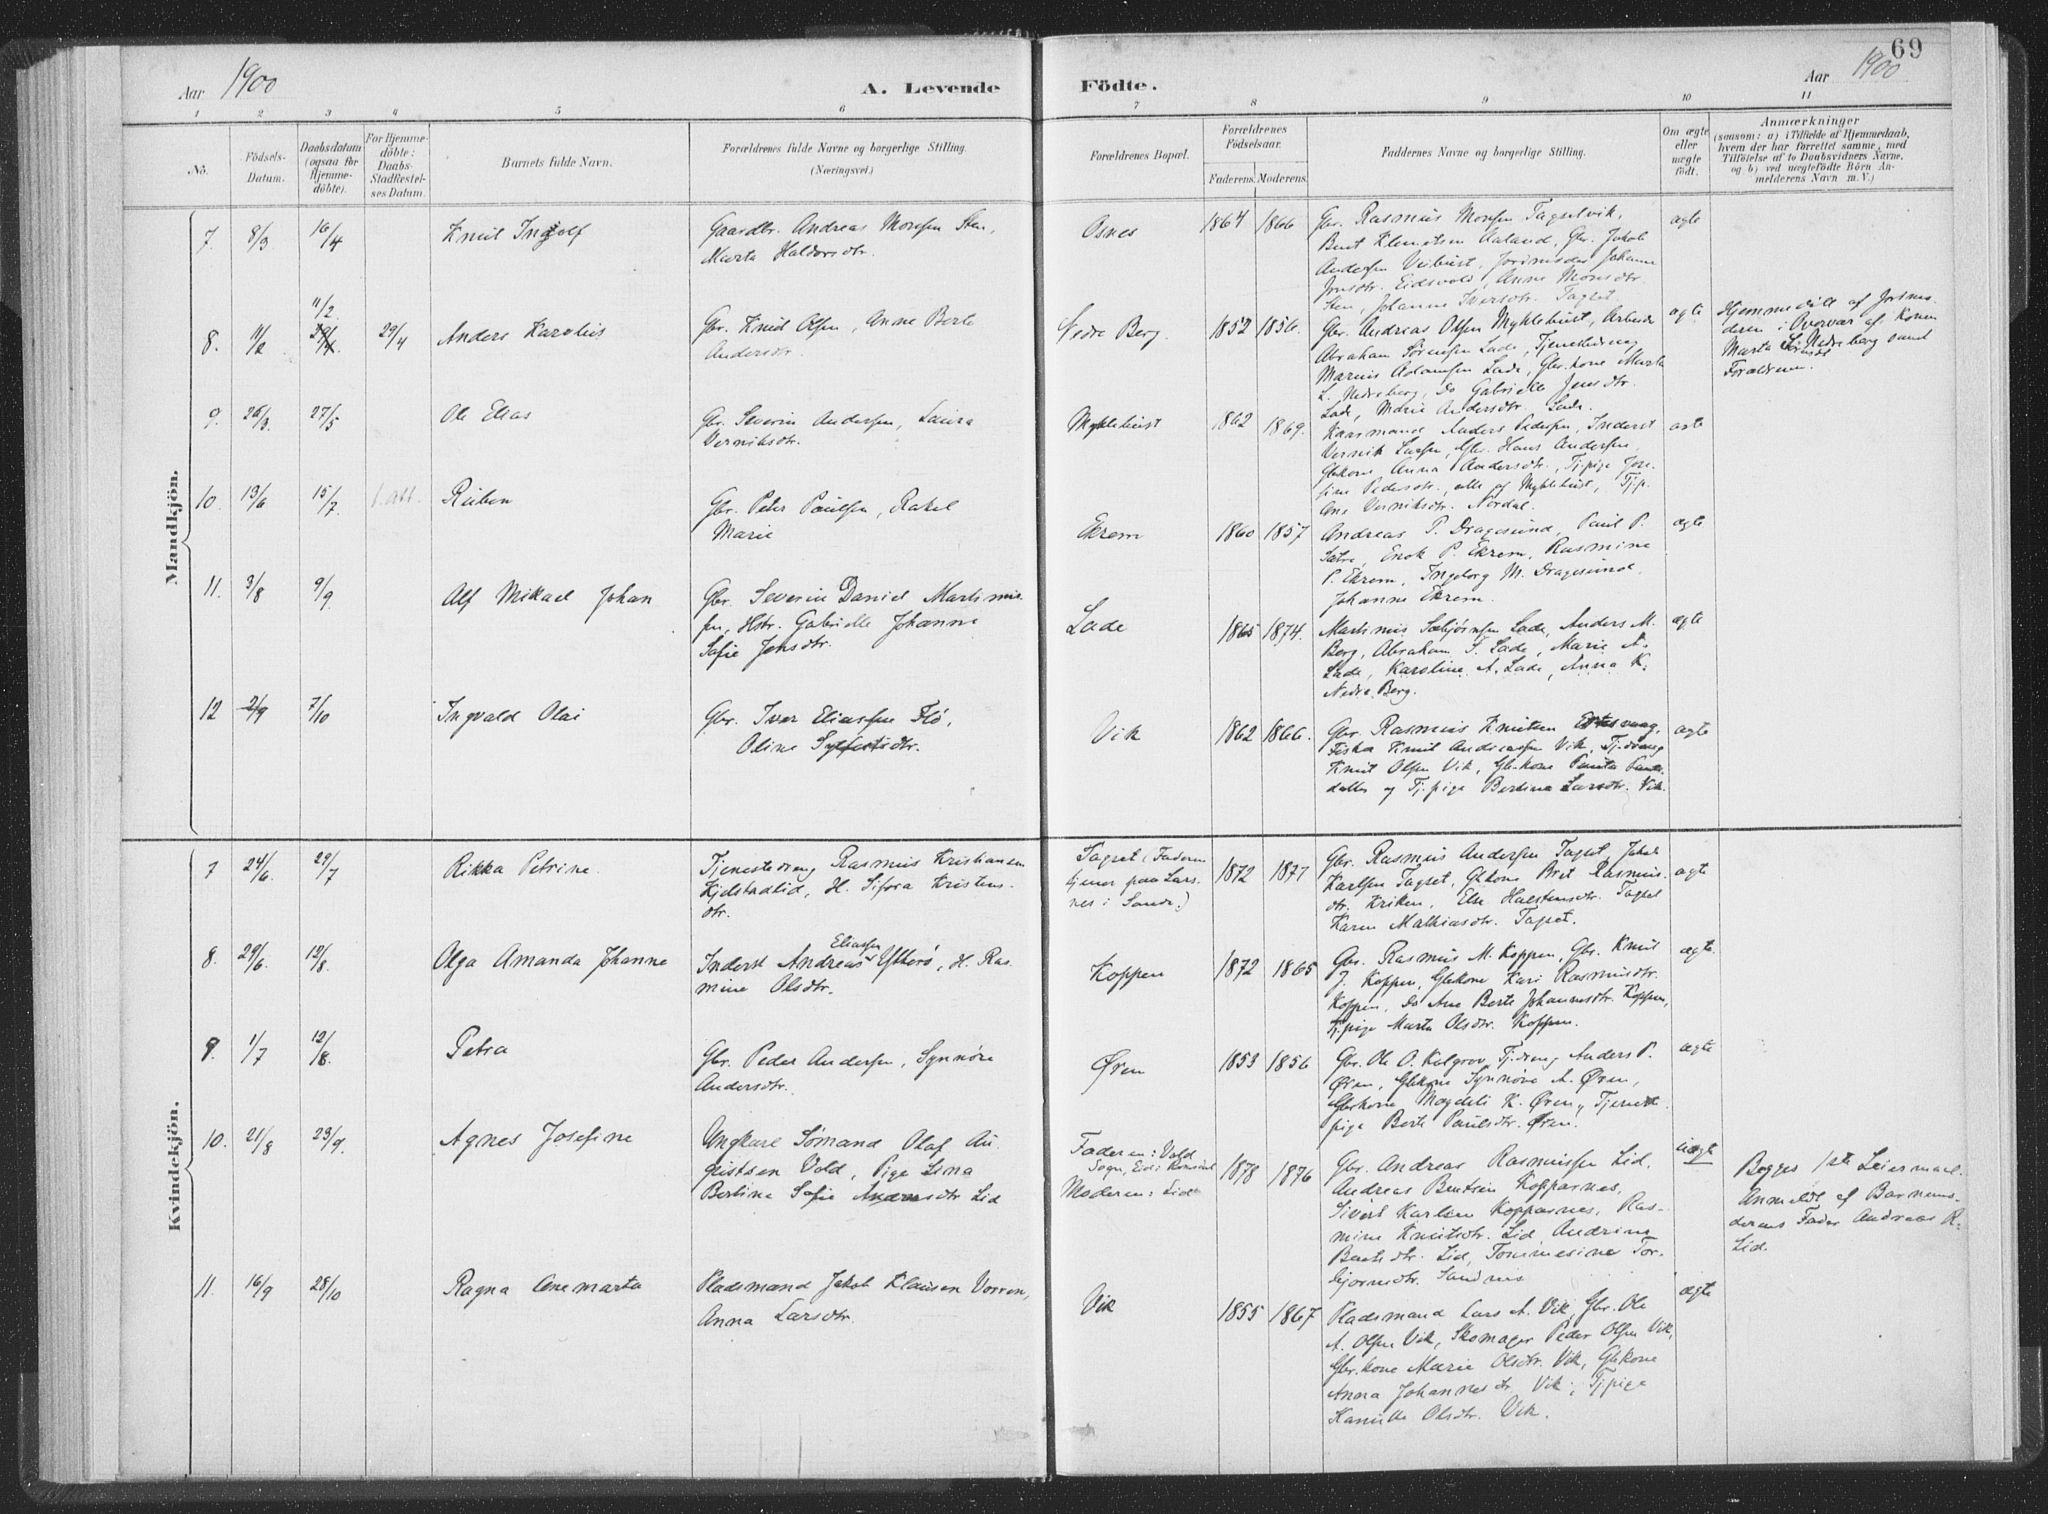 69
Aar 1900
A. Levende
Födte.
Aar 1900
1 2 3 4 5 6 7 8 9 10 11
No.
Födsels-
Datum.
Daabsdatum
(ogsaa for
Hjemme-
döbte).
For Hjemme-
döbte:
Daabs-
Stadfæstel-
ses Datum.
Barnets fulde Navn.
Forældrenes fulde Navne og borgerlige Stilling.
(Næringsvei.)
Forældrenes Bopæl.
Forældrenes
Födselsaar.
Faderens. Moderens.
Faddernes Navne og borgerlige Stilling.
Om ægte
eller
uægte
födt.
Anmærkninger
(saasom: a) i Tilfælde af Hjemmedaab,
hvem der har forrettet samme, med
Tilföielse af to Daabsvidners Navne,
og b) ved uægtefödte Börn An-
melderens Navn m. V.)
Mandkjön.
7. 8/3 16/4
Knut Ingolf
Gaardbr. Andreas Monsen Sten,
Marta Haldorsdtr.
Osnes
1864 1866
Gbr. Rasmus Monsen Tagselvik,
Bent Klemetsen Aaland, Gbr. Jakob
Andersen Veibust, Jordmoder Johanne
Jonsdtr. Eidsvold, Anne Monsdtr.
Sten, Johanne Iversdtr. Tagset
ægte
8. 11/2 11/2 29/4
Anders Karolius
Gbr. Knut Olsen, Anne Berte
Andersdtr.
Nedre Berg.
1852 1856.
Gbr. Andreas Olsen Myklebust, Arbeider
Abraham Sørensen Lade, Tjenestedreng
Marius Adamsen Lade, Gbr.kone Marta
L. Nedreberg, do Gabrielle Jensdtr.
Lade, Marie Andersdtr. Lade.
ægte
Hjemmedöbt af Jordmo-
deren i Overvær af Konen
Marta Nedreberg samt
Forældrene.
9. 26/3 27/5
Ole Elias
Gbr. Severin Andersen, Laura
Verniksdtr.
Myklebust
1862 1869.
Kaarmand Anders Pedersen, Inderst
Vernik Larsen, Gbr. Hans Andersen,
Gbkone Anna Andersdtr., Tj.pige Jose-
fine Pedersdtr., alle af Myklebust, Tj.p.
Ane Verniksdtr. Nordal.
ægte
10. 13/6 15/7
Ruben
Gbr. Peter Paulsen, Rakel
Marie
Ekrem
1860 1857
Andreas P. Dragesund, Paul P.
Sætre, Enok P. Ekrem, Rasmine
P. Ekrem, Ingeborg M. Dragesund,
Johanne Ekrem.
ægte
11. 3/8 9/9
Alf Mikael Johan
Gbr. Severin Daniel Martinus-
sen, Hstr. Gabrielle Johanne
Sofie Jensdtr.
Lade
1865 1874.
Martinus Sæbjørnsen Lade, Anders M.
Berg, Abraham S. Lade, Marie A.
Lade, Karoline A. Lade, Anna K.
Nedre Berg.
ægte
12 2/9 7/10
Ingvald Olai
Gbr. Iver Eliassen Flø,
Oline Sylfestdtr.
Vik
1862 1866.
Gbr. Rasmus Knutsen
Fisker Knut Andreassen Vik, Tj.dreng
Knut Olsen Vik, Gbr.kone
og Tj.pige Bertina Larsdtr. Vik.
ægte
Kvindekjön.
7 24/6 29/7
Rikka Petrine.
Tjenestedreng Rasmus Kristiansen
Kjelstadlid, H. Sifora Kristens-
dtr.
Tagset (Faderen
tjener paa Lars-
nes i Sande.)
1872 1877
Gbr. Rasmus Andersen Tagset, Jakob
Karlsen Tagset, Gbkone Brit Rasmus-
dtr. Kriken, Else Halstensdtr. Tagset
Karen Mathiasdtr. Tagset.
ægte
8. 29/6. 12/8.
Olga Amanda Johanne
Inderst Andreas Eliassen Ytterø, H. Ras-
mine Olsdtr.
Koppen
1872 1865
Gbr. Rasmus M. Koppen, Gbr. Knut
J. Koppen, Gbkone Kari Rasmusdtr.
Koppen, do Ane Berte Johannesdtr. Koppen,
Tj.pige Marta Olsdtr. Koppen.
ægte.
9. 1/7 12/8.
Petra
Gbr. Peder Andersen, Synnöve
Andersdtr.
Øren
1853 1856
Gbr. Ole O. Kilgrov, Tj.dreng Anders P.
Øren, Gbkone Synnøve A. Øren,
Gbrkone Magdeli K. Øren, Tjeneste-
pige Berte Paulsdtr. Øren.
ægte
10. 21/8 23/9.
Agnes Josefine
Ungkarl Sømand Olaf Au-
gustsen Vold, Pige Lina
Bertine Sofie Andersdtr Lid
Faderen: Vold
Sogn,
Moderen: Lid
1878 1876
Gbr. Andreas Rasmussen Lid,
Andreas Bentsen Kopparnes,
Sivert Karlsen Kopparnes, Ras-
mine Knutsdtr. Lid, Andrine
Bentsdtr. Lid, Tommesine Tor-
bjørnsdtr. Sandnes
uægte
Begges 1ste Leiermaal.
Anmeldt af Barnemo-
derens Fader Andreas R.
Lid.
11. 16/9 28/10
Ragna Anemarta
Pladsmand Jakob Klausen Vorren,
Anna Larsdtr.
Vik
1855 1867
Pladsmand Lars A. Vik, Gbr. Ole
A. Olsen Vik, Skomager Peder Olsen Vik,
Gbr.kone Marie Olsdtr. Vik, Gbkone
Anna Johannesdtr. Vik, Tj.pige
Kamilla Olsdtr. Vik.
ægte